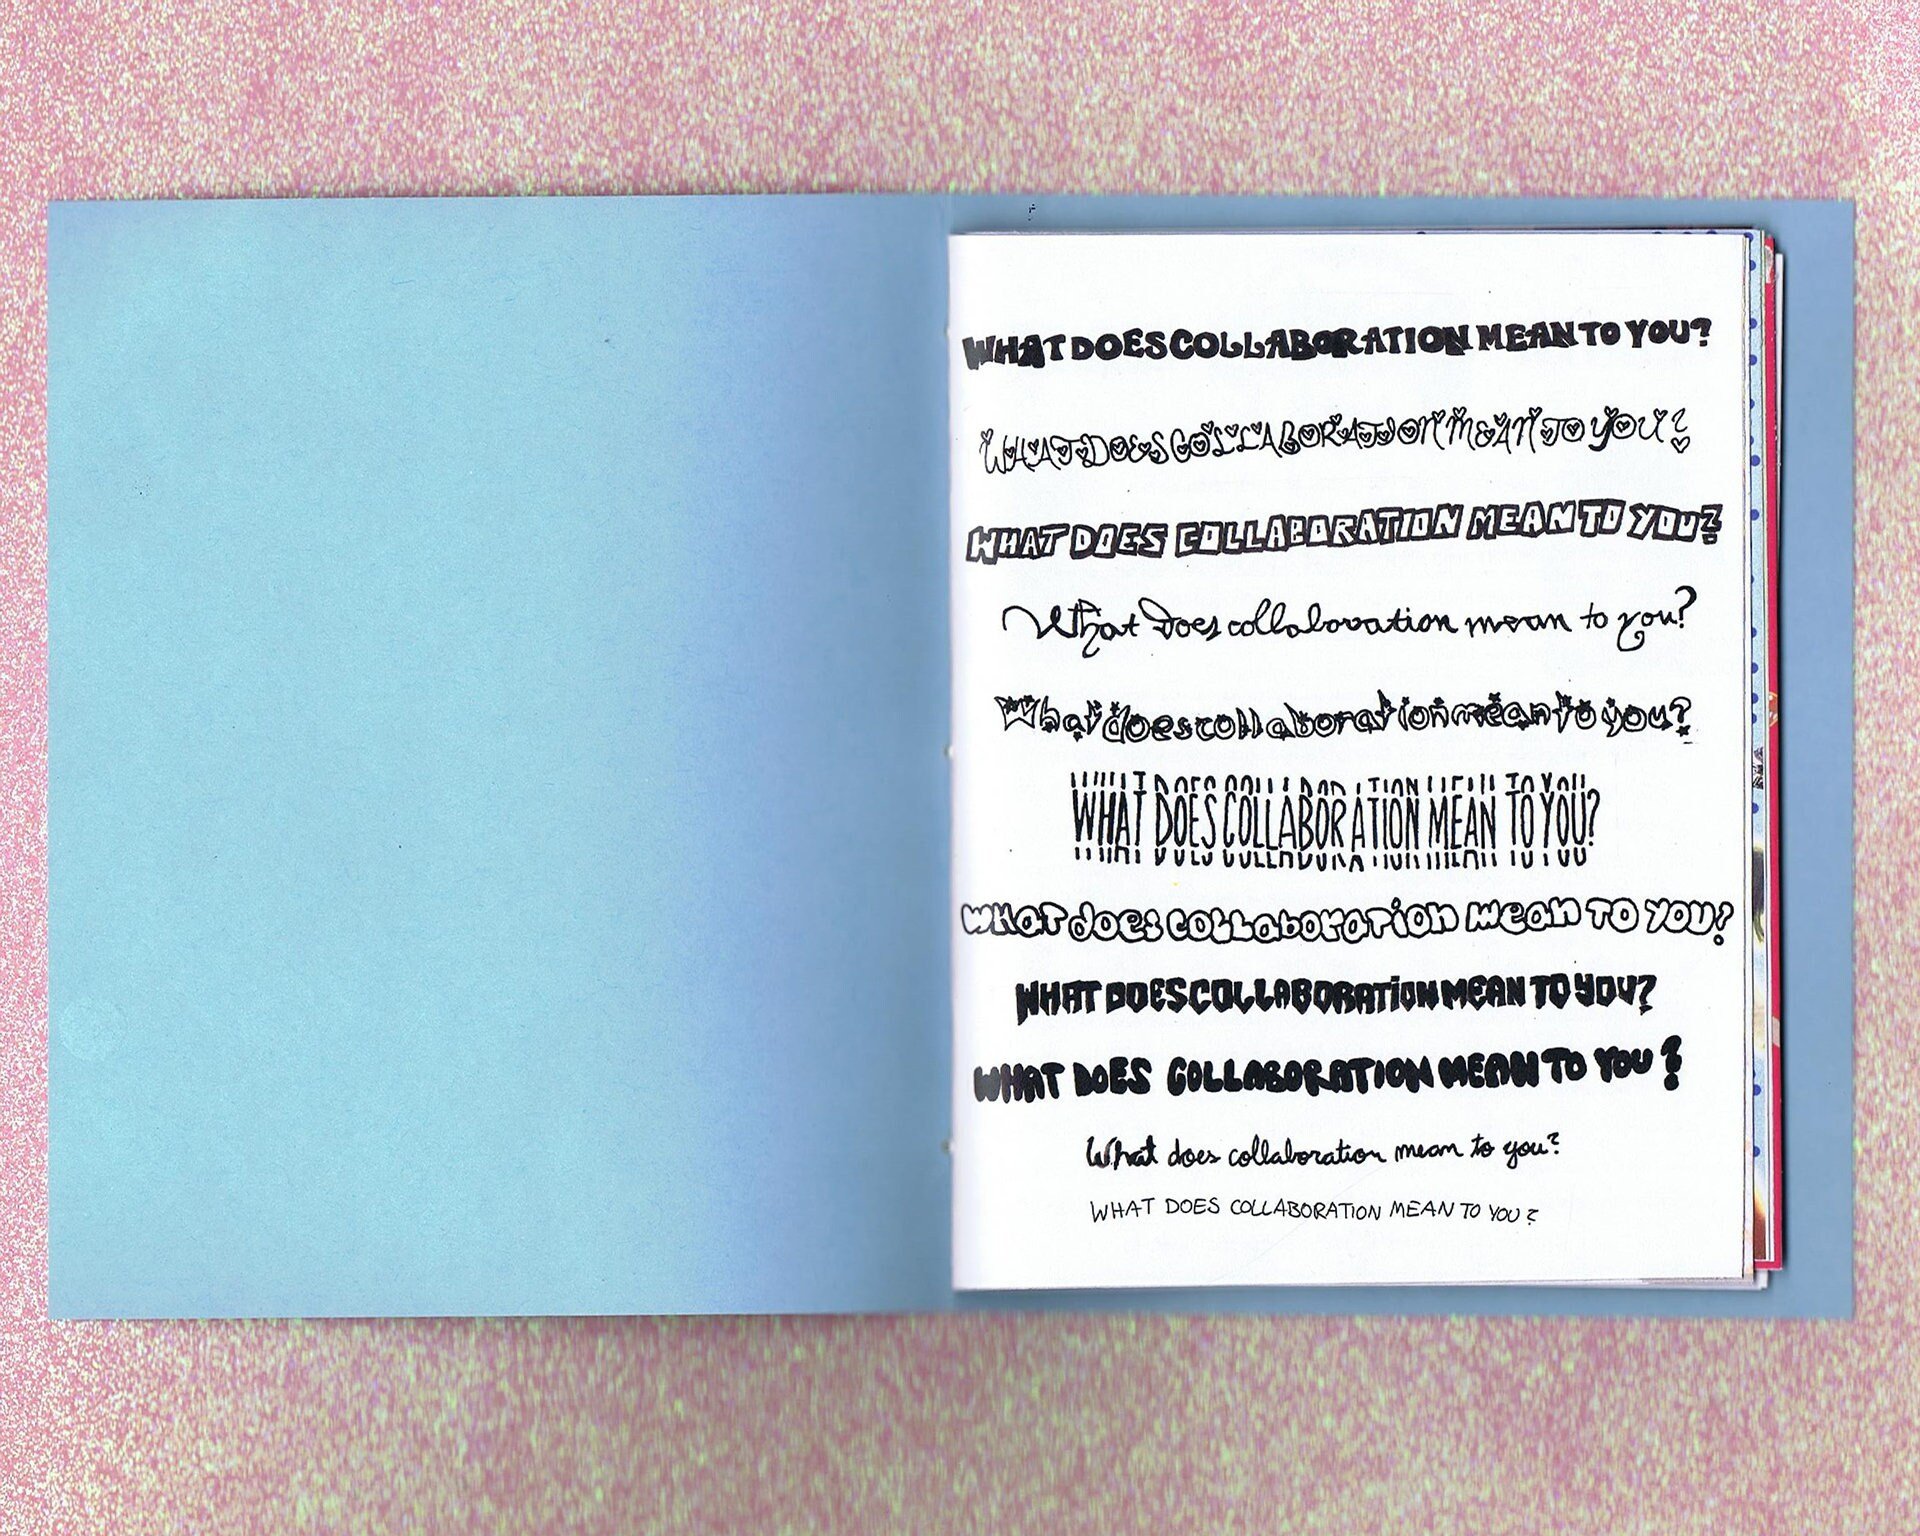 WHAT DOES COLLABORATION MEAN TO YOU?
WHAT DOES COLLABORATION MEAN TO YOU?
WHAT DOES COLLABORATION MEAN TO YOU?
What does collaboration mean to you?
What does collaboration mean to you?
WHAT DOES COLLABORATION MEAN TO YOU?
WHAT does COLLaboration mean TO YOU?
WHAT DOES COLLABORATiON MEAN TO YOU?
WHAT DOES COLLABORATION MEAN TO YOU?
What does collaboration mean to you?
WHAT DOES COLLABORATION MEAN TO YOU?